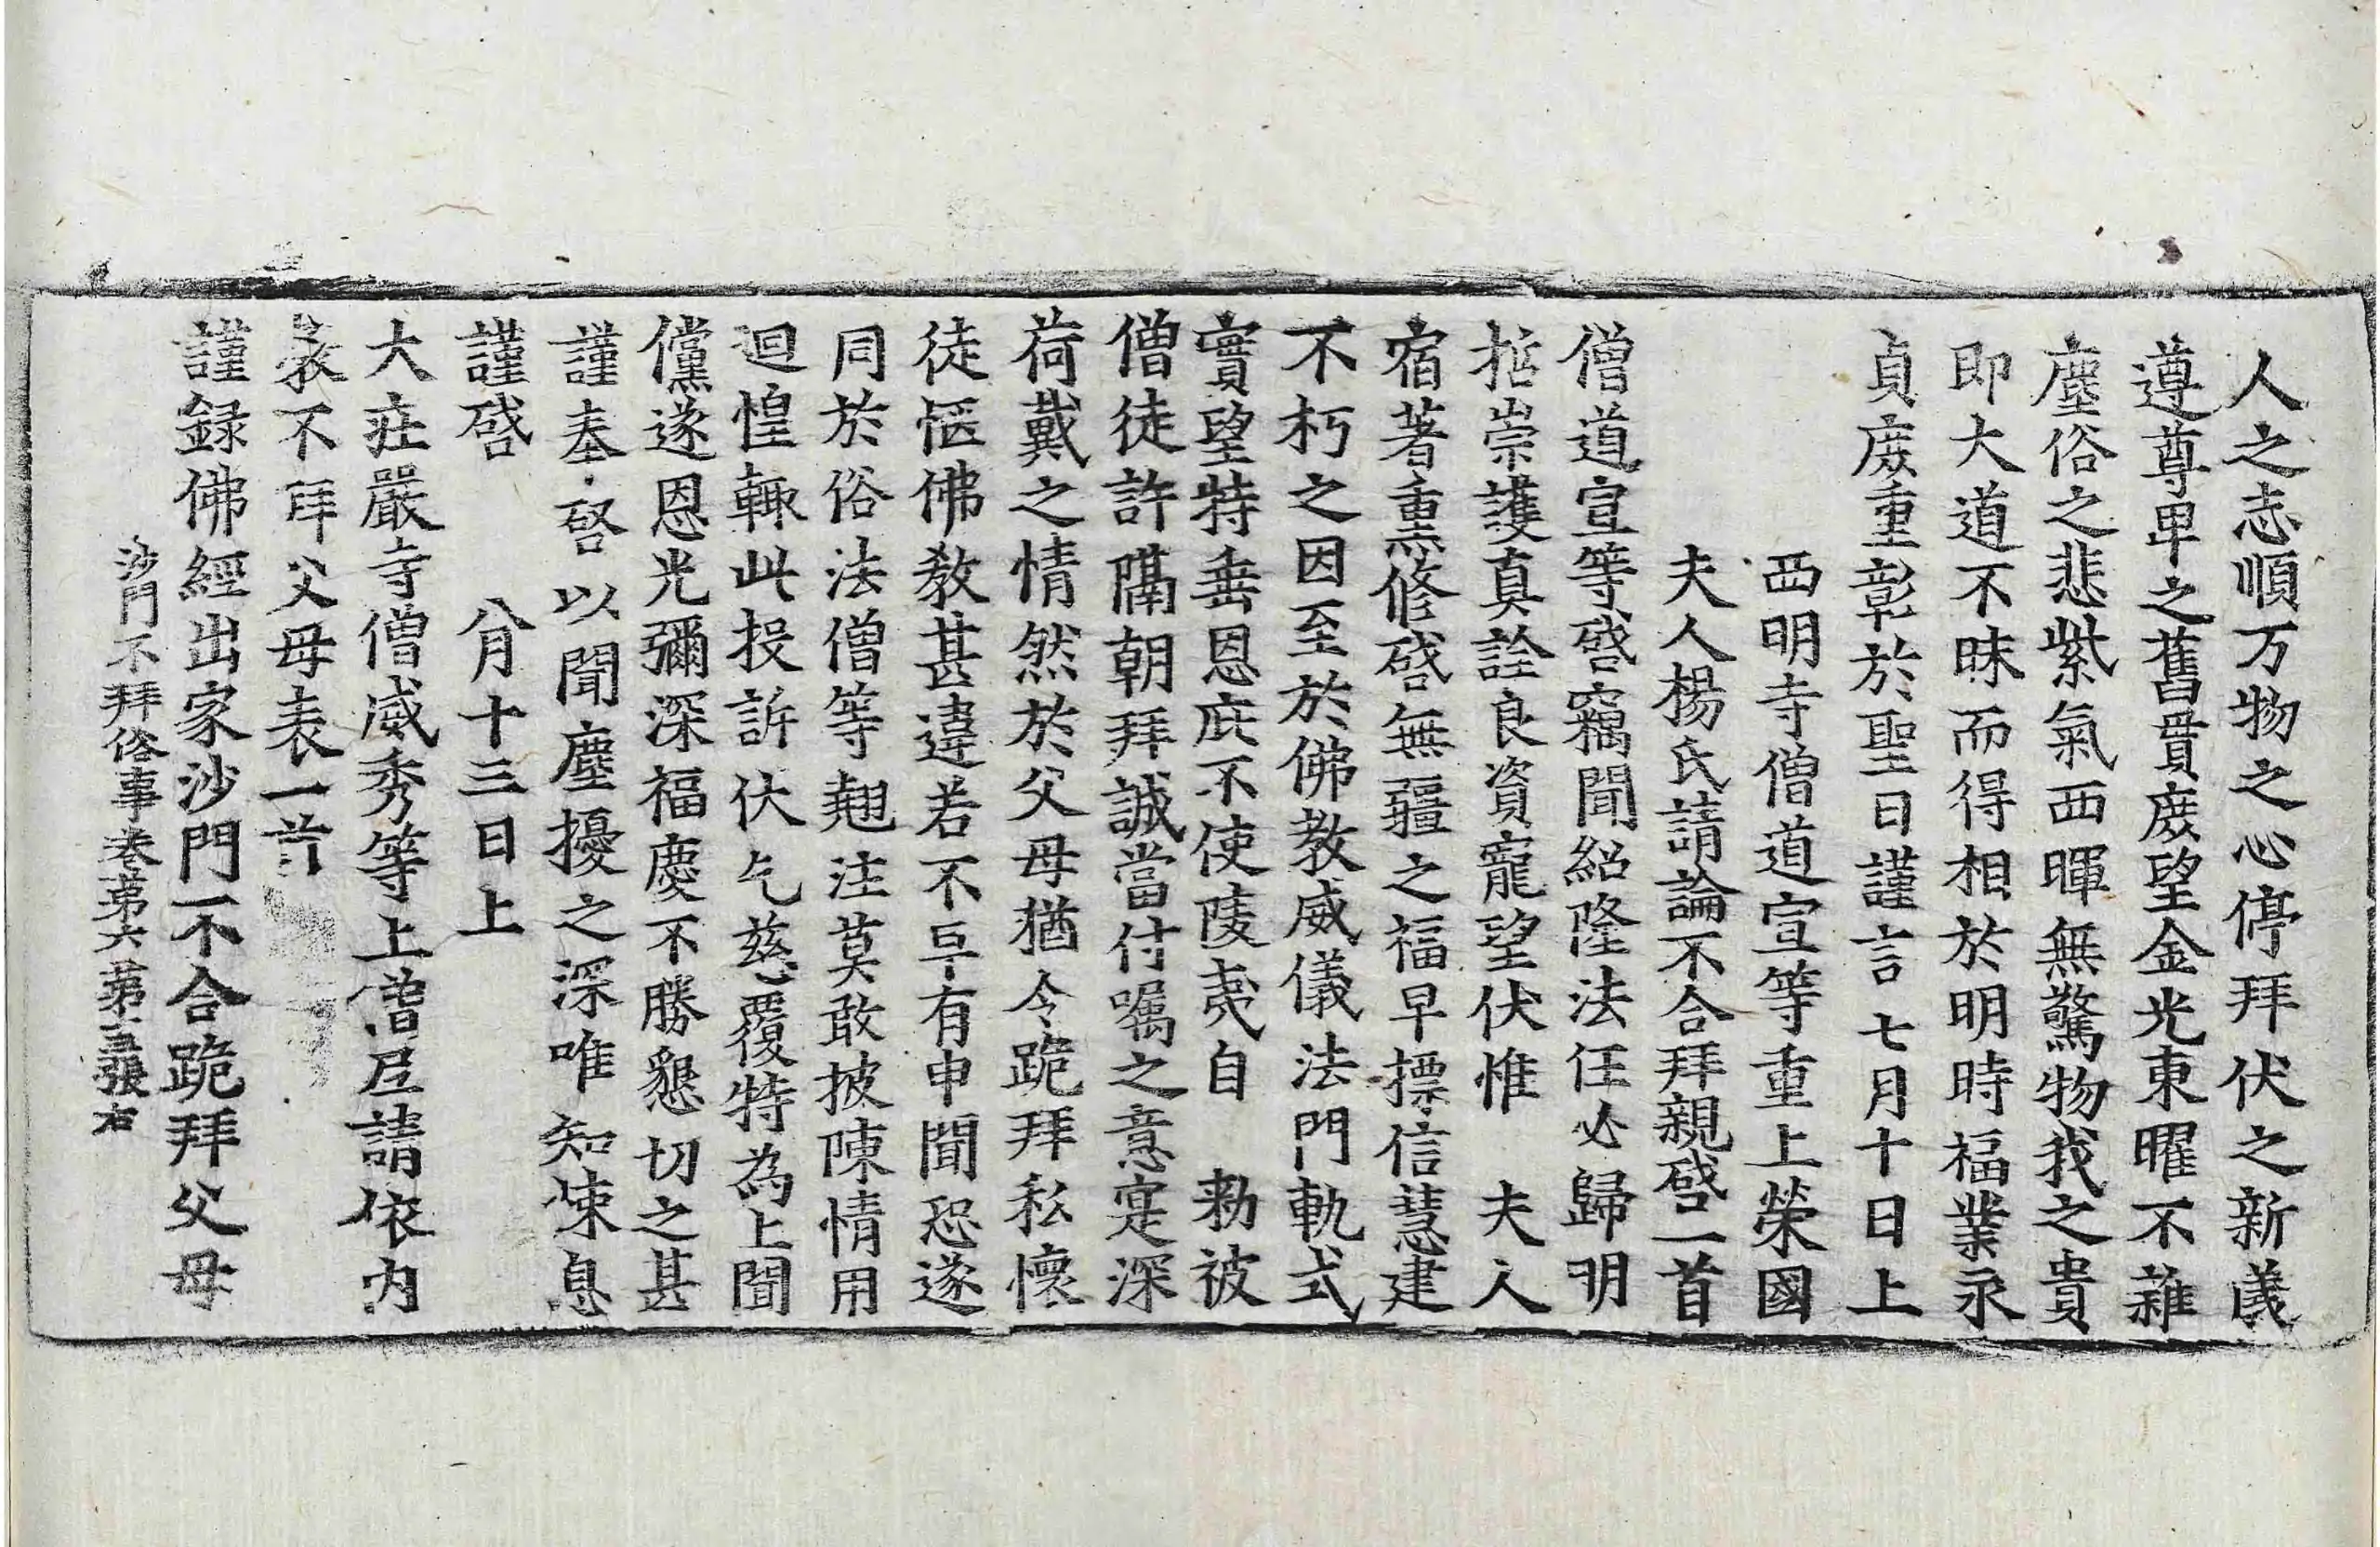 人之志順万物之心停拜伏之新儀
遵尊卑之舊貫庻望金光東曜不雜
塵俗之悲紫氣西暉無驚物我之貴
即大道不昧而得相於明時福業永
貞庻重彰於聖日謹言七月十日上
西明寺僧道宣等重上榮國
夫人楊氏請論不合拜親啓一首
僧道宣等啓竊聞紹隆法任必歸明
拞崇護真詮良資寵望伏惟 夫人
宿著熏修啓無疆之福早摽信慧建
不朽之因至於佛教威儀法門軌式
實望特垂恩庇不使陵夷自 勑被
僧徒許隔朝拜誠當付囑之意寔深
荷戴之情然於父母猶令跪拜私懷
徒恇佛教甚違若不早有申聞恐遂
同於俗法僧等翹注莫敢披陳情用
迴惶輙此投訴伏乞慈覆特為上聞
儻遂恩光彌深福慶不勝懇切之甚
謹奉啓以聞塵擾之深唯知悚息
謹啓 八月十三日上
大莊嚴寺僧威秀等上僧尼請依內
教不拜父母表一首
謹録佛經出家沙門不合跪拜父母
沙門不拜俗事卷第六 第五張 右